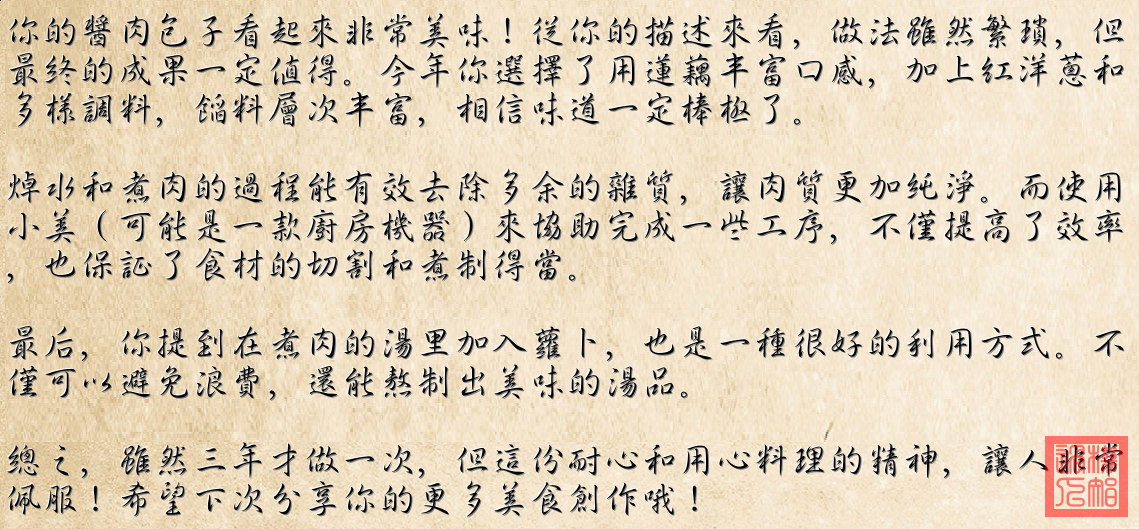 你的醬肉包子看起來非常美味！從你的描述來看，做法雖然繁瑣，但
最終的成果一定值得。今年你選擇了用蓮藕豐富口感，加上紅洋蔥和
多樣調料，餡料層次丰富，相信味道一定棒極了。
焯水和煮肉的過程能有效去除多余的雜質，讓肉質更加純淨。而使用
小美（可能是一款廚房機器）來協助完成一些工序，不僅提高了效率
，也保証了食材的切割和煮制得當。
最后，你提到在煮肉的湯里加入蘿卜，也是一種很好的利用方式。不
僅可以避免浪費，還能熬制出美味的湯品。
總之，雖然三年才做一次，但這份耐心和用心料理的精神，讓人非常
佩服！希望下次分享你的更多美食創作哦！